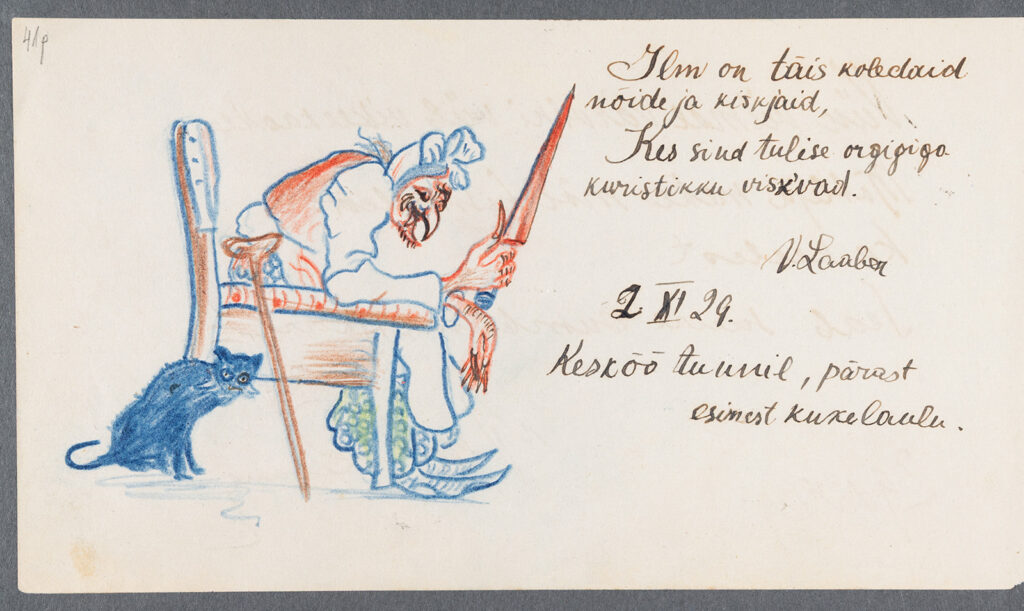 41p
Ilm on täis koledaid
nõide ja kiskjaid,
Kes sind tulise orgigiga
kuristikku viskvad.
V. Laaber
2 XI 29.
Kesköö tunnil, pärast
esimest kukelaulu.